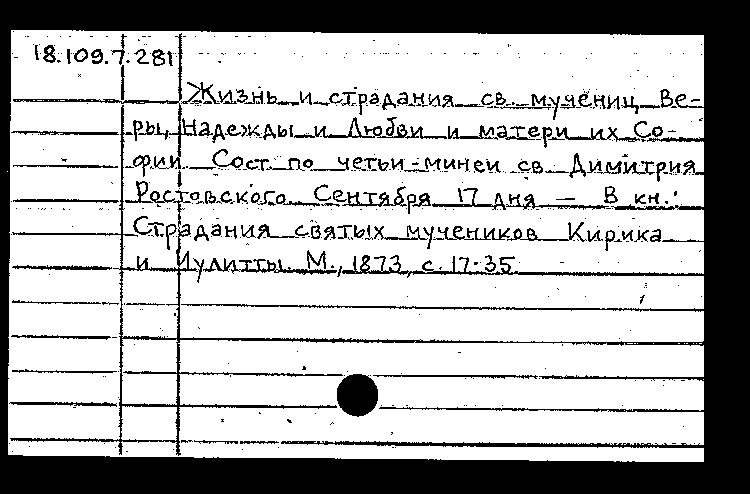 18.109.7.281
Жизнь и страдания св. мучениц Ве-
ры, Надежды и Любви и матери их Со-
фии. Сост. по четьи-минеи св. Димитрия
Ростовского. Сентября 17 дня — В кн.:
Страдания святых мучеников Кирика
и Иулитты. М., 1873, с. 17-35